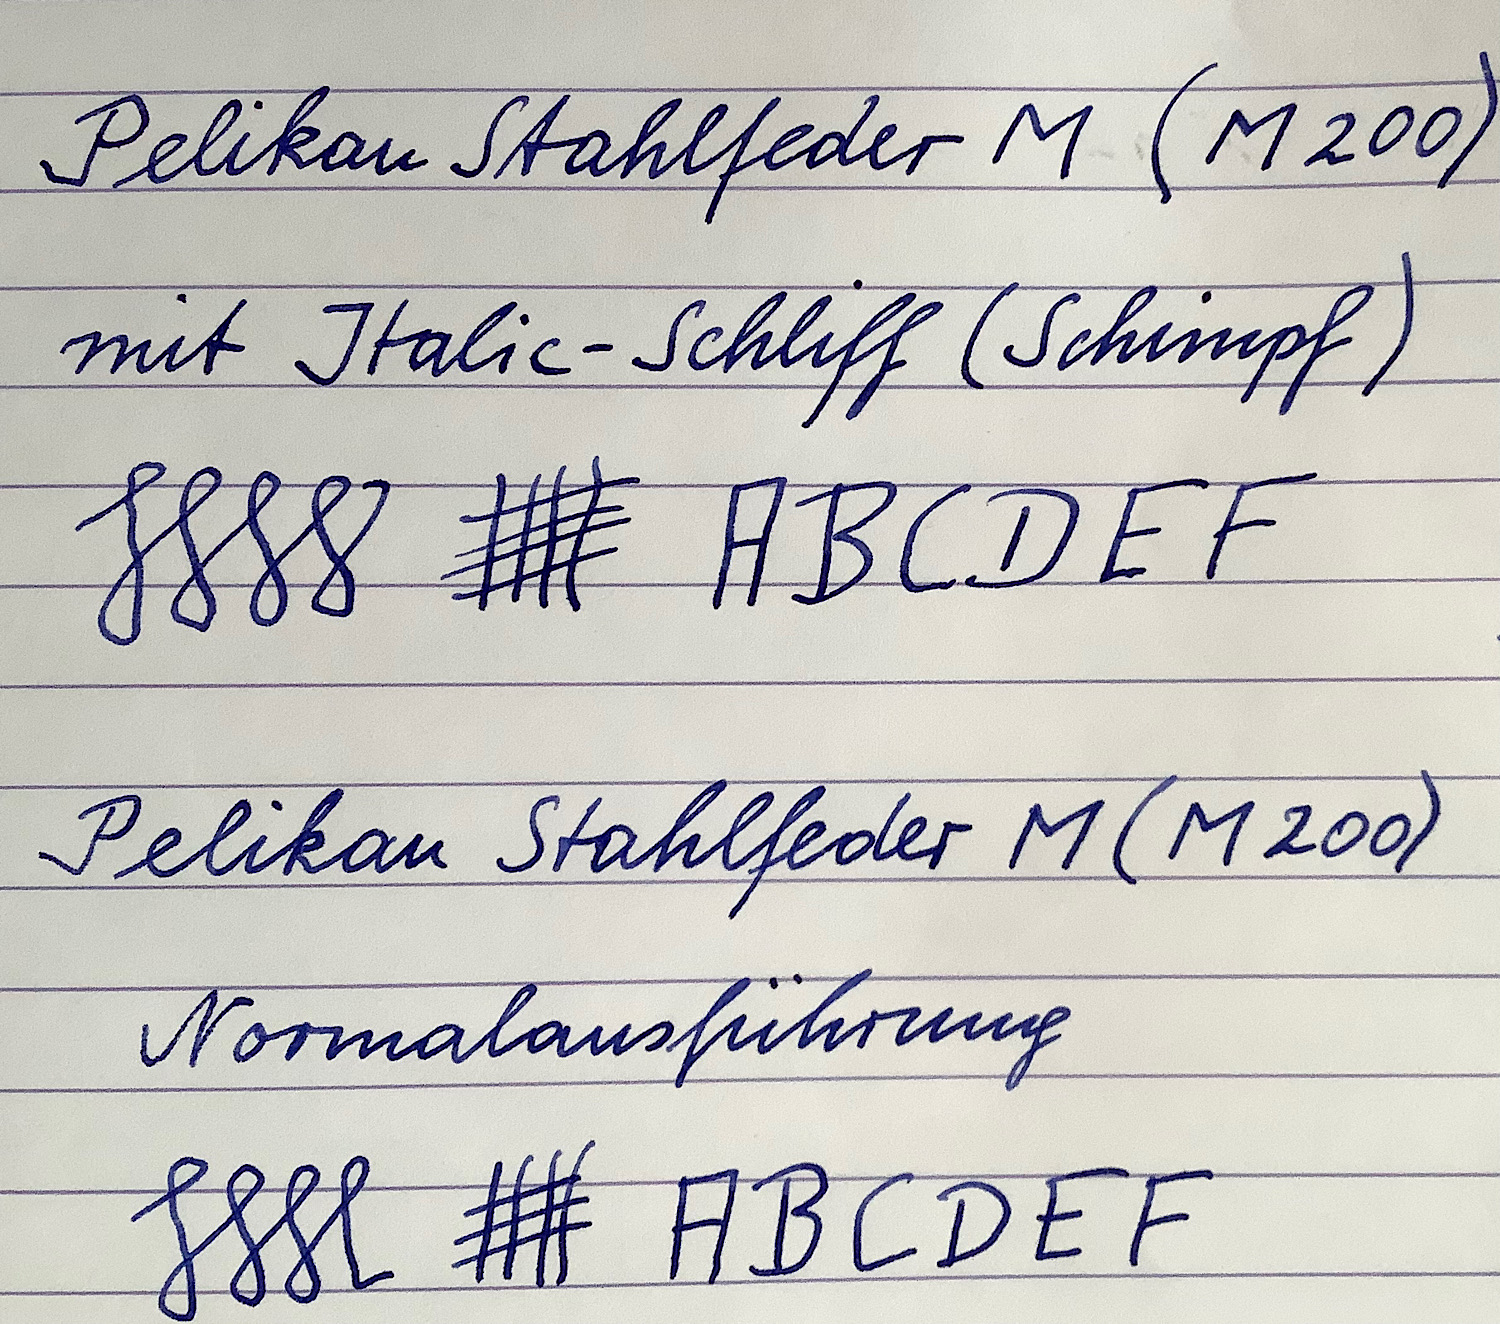 Pelikan Stahlfeder M (M200)
mit Italic-Schliff (Schimpf)
ABCDEF
Pelikan Stahlfeder M (M200)
Normalausführung
ABCDEF